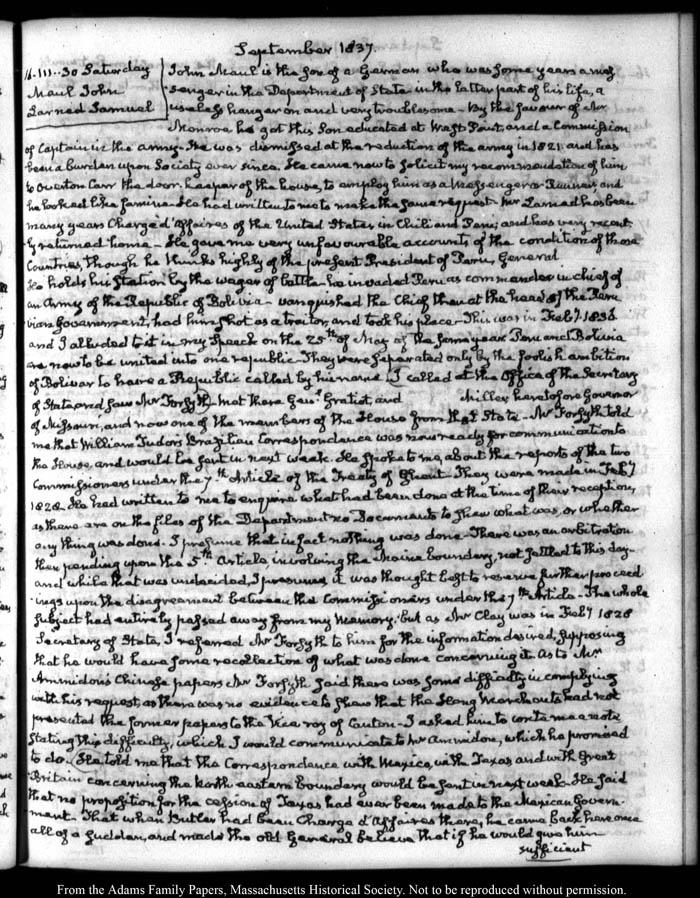 September 1837.
16. III..30 Saturday
Maul John
Larned Samuel
John Maul is the son of a German who was some years a mes-
senger in the Department of State in the latter part of his life, a
useless hanger on and very troublesome. By the favour of Mr
Monroe he got this Son educated at West Point, and a Commission
of Captain in the army. He was dismissed at the reduction of the army in 1821. and has
been a burden upon Society ever since. He came now to solicit my recommendation of him
to Overton Carr the door-keeper of the house, to employ him as a Messenger or Runner, and
he looked like famine. He had written to me to make the same request. Mr Larned has been
many years Chargé d'Affaires of the United States in Chili and Peru; and has very recent-
ly returned home. He gave me very unfavourable accounts of the condition of those
Countries, though he thinks highly of the present President of Peru, General
He holds his Station by the wager of battle. he invaded Peru as commander in chief of
an Army of the Republic of Bolivia. vanquished the Chief then at the head of the Peru
vian Government, had him shot as a traitor, and took his place. This was in Feby 1836
and I alluded to it in my Speech on the 25th of May of the same year. Peru and Bolivia
are now to be united into one republic. They were separated only by the foolish ambition
of Bolivar to have a Republic called by his name. I called at the Office of the Secretary
of State, and saw Mr Forsyth. Met there Genl Gratiot, and Miller heretofore Governor
of Missouri, and now one of the members of the House from that State. Mr Forsyth told
me that William Tudor's Brazilian Correspondence was now ready for communication to
the House, and would be sent in next week. He spoke to me about the reports of the two
Commissioners under the 7th Article of the Treaty of Ghent. They were made in Feby
1828. He had written to me to enquire what had been done at the time of their reception,
as there are on the files of the Department no Documents to shew what was, or whether
any thing was done. I presume that in fact nothing was done. There was an arbitration
then pending upon the 5th Article involving the Maine boundary, not settled to this day.
and while that was undecided, I presume it was thought best to reserve further proceed
ings upon the disagreement between the Commissioners under the 7th Article. The whole
subject had entirely passed away from my Memory. but as Mr Clay was in Feby 1828
Secretary of State, I referred Mr Forsyth to him for the information desired, supposing
that he would have some recollection of what was done concerning it. As to Mr
Ammidon's Chinese papers Mr Forsyth said there was some difficulty in complying
with his request, as there was no evidence to shew that the Hong Merchants had not
presented the former papers to the Vice roy of Canton. I asked him to write me a note
stating this difficulty, which I would communicate to Mr Ammidon, which he promised
to do. He told me that the Correspondence with Mexico, with Texas, and with Great
Britain concerning the North eastern boundary would be sent in next week. He said
that no proposition for the cession of Texas had ever been made to the Mexican Govern-
ment. That when Butler had been Chargé d'Affaires there, he came back here once
all of a sudden, and made the old General believe that if he would give him
sufficient
From the Adams Family Papers, Massachusetts Historical Society. Not to be reproduced without permission.